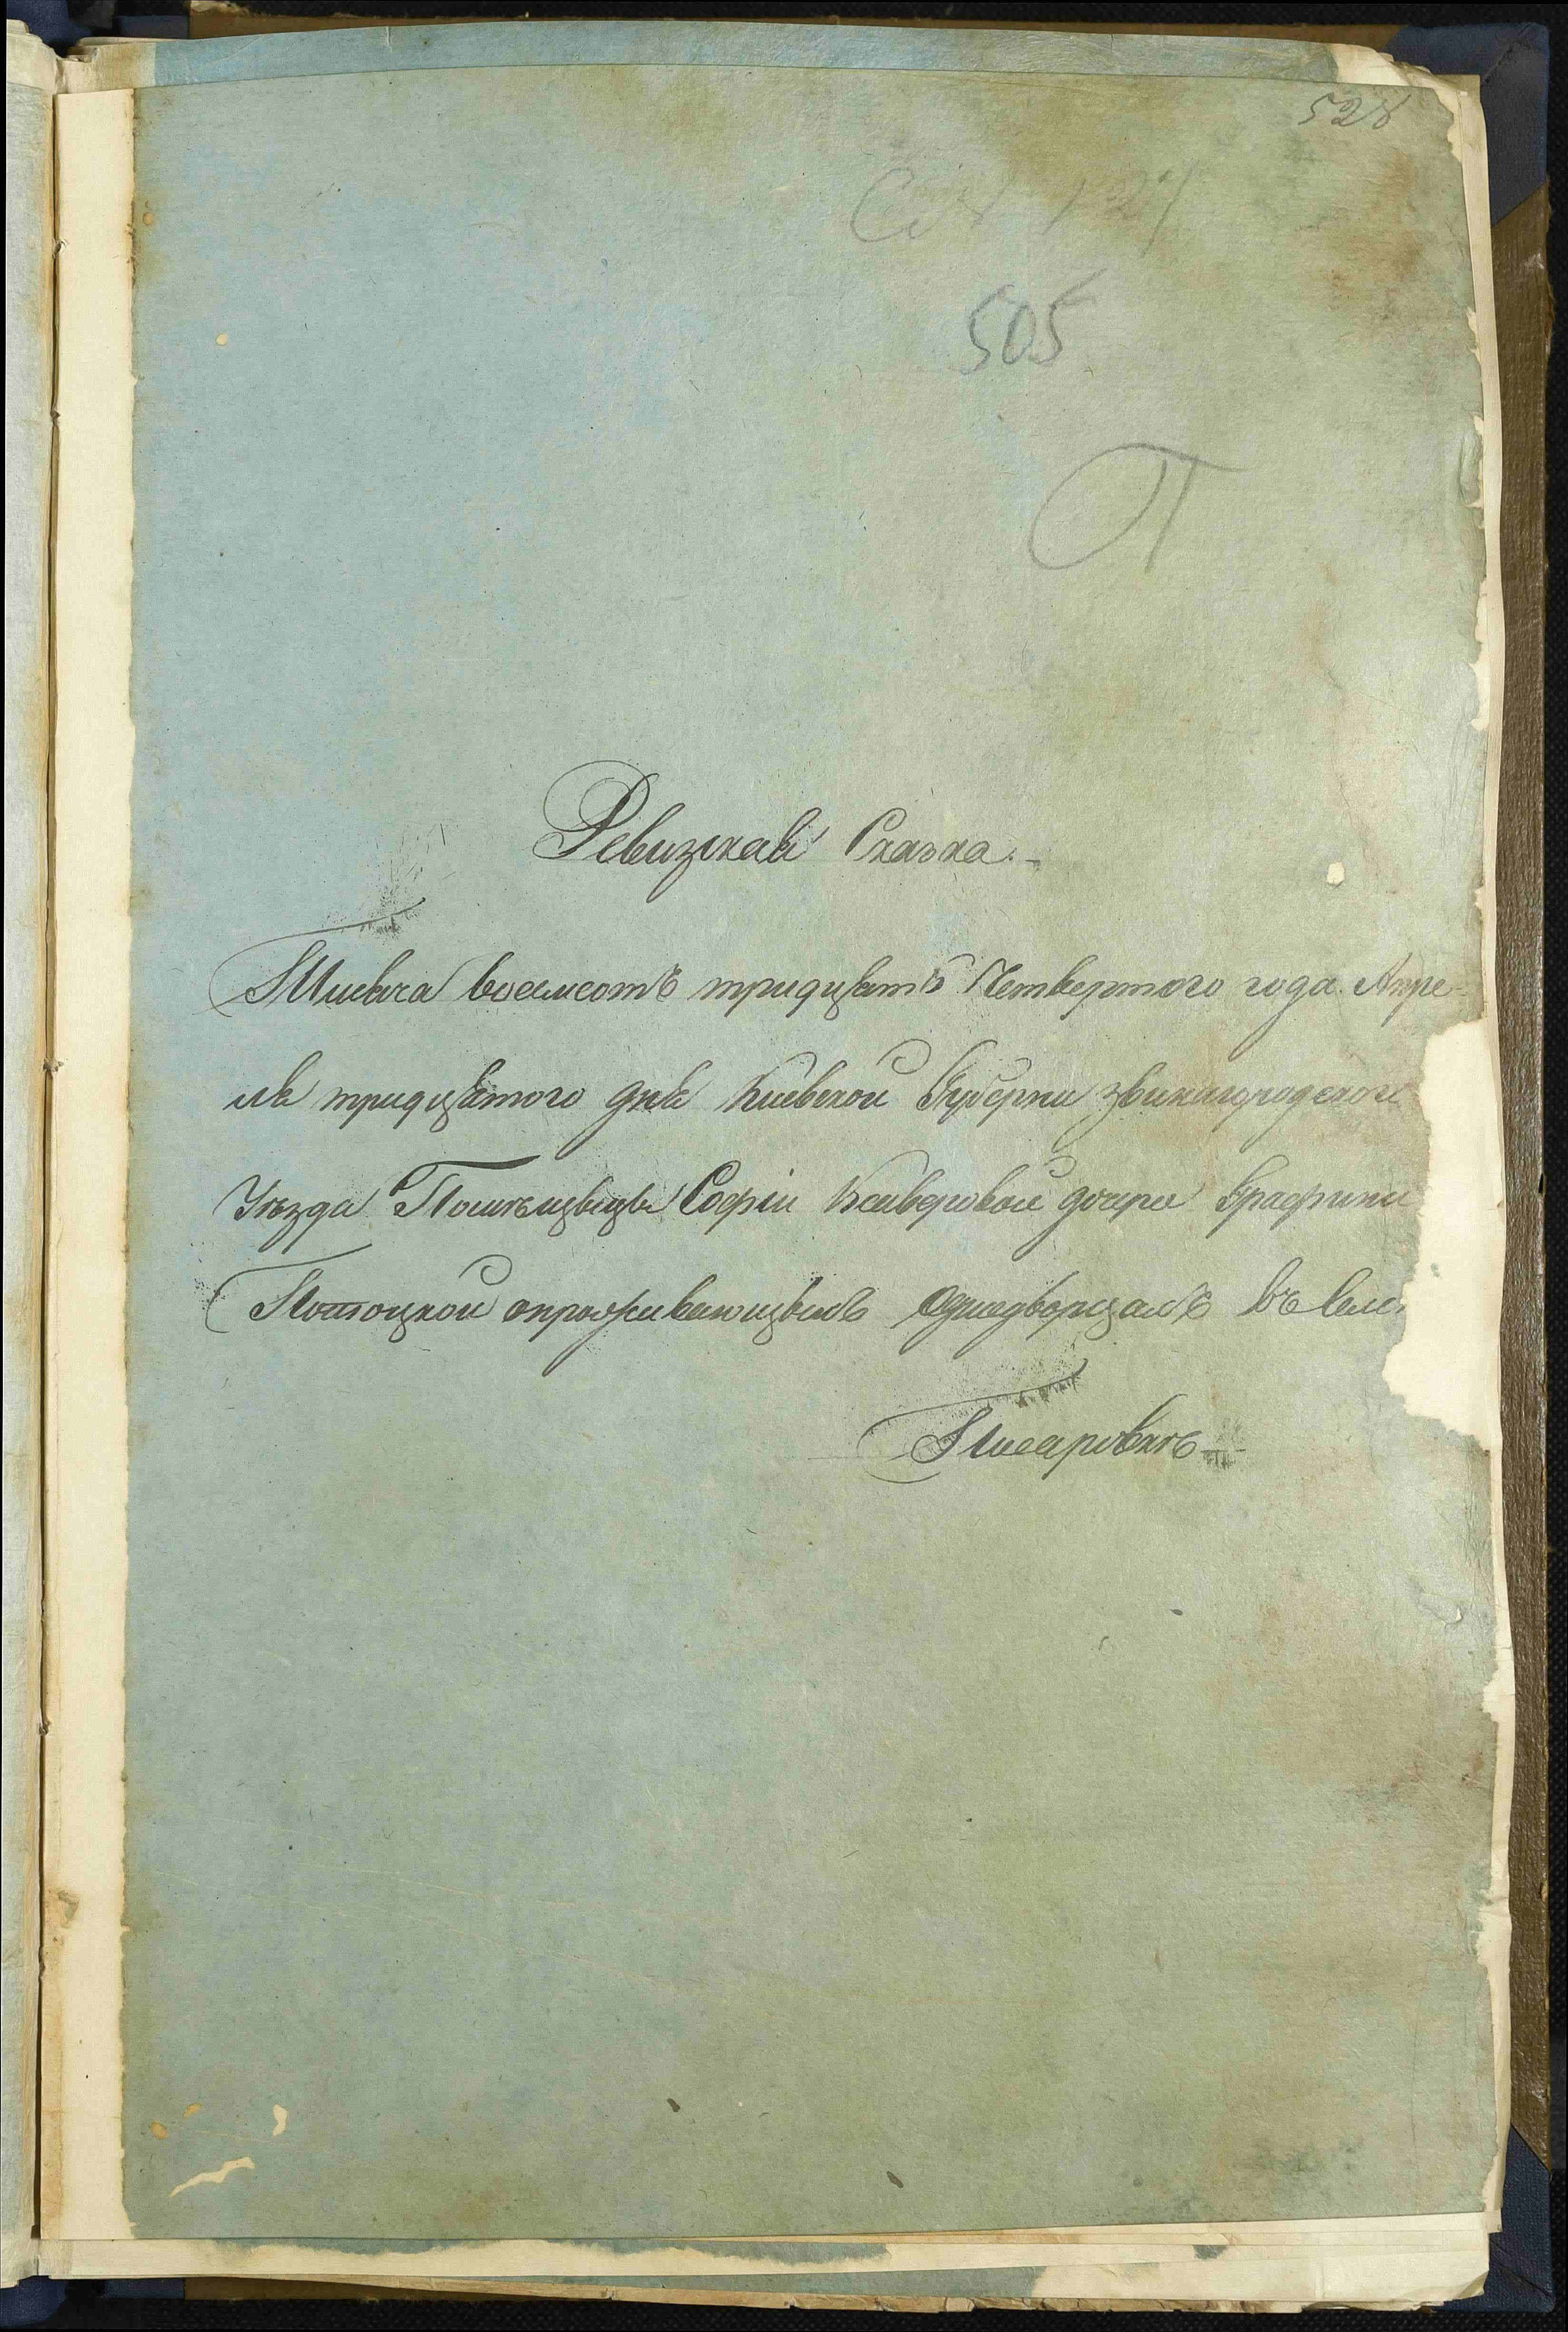 528
505
П
Ревизская Сказка.
Тисеча восемсотъ тридцать Четвертого года Апре-
ля тридцятого дня Киевской Губерни звинигородского
Уѣзда Помѣщици Софіи Ксаверовой дочери Графини
Потоцкой опроживающихъ Однодворцахъ въ селѣ
Писаровкѣ